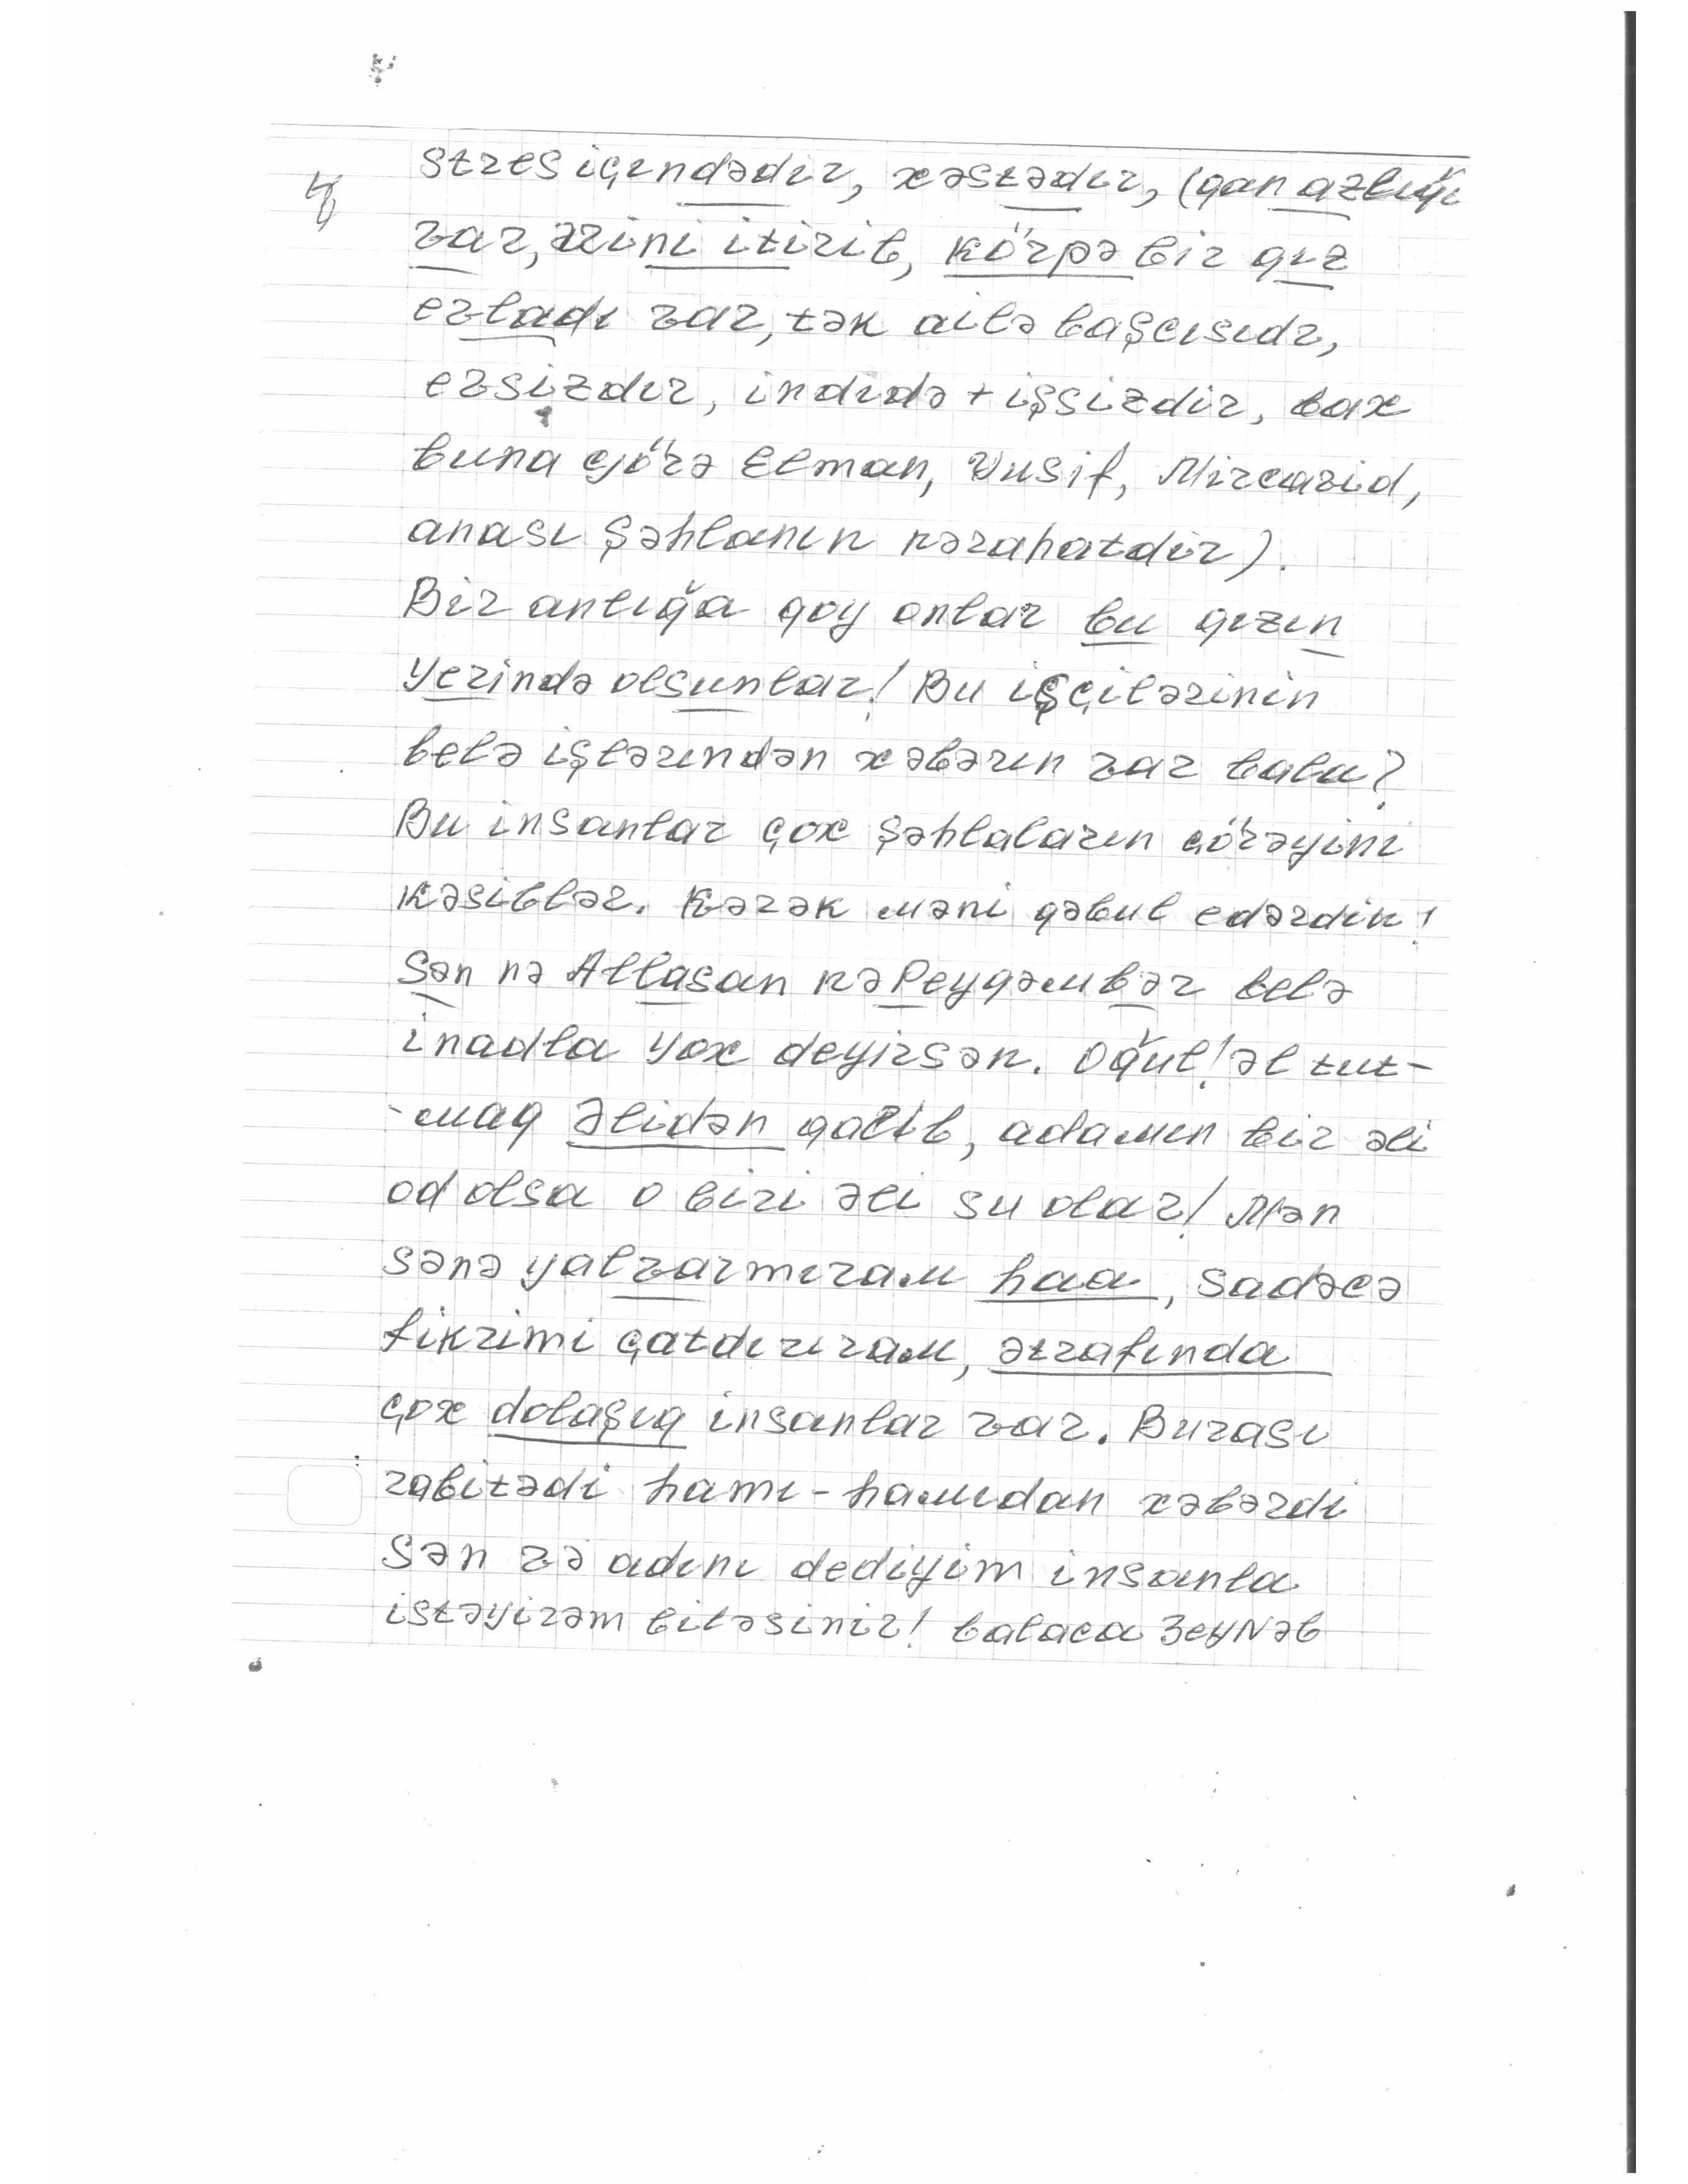 stres içindədir, xəstədir, (qan azlığı
var, ərini itirib, körpə bir qız
evladı var, tək ailə başçısıdr,
evsizdir, indidə + işsizdir, bax
buna görə Elman, Vusif, Mircavid,
anası Şəhlanın narahatdır).
Bir anlığa qoy onlar bu qızın
yerində olsunlar! Bu işçilərinin
belə işlərindən xəbərin var bala?
Bu insanlar çox Şəhlaların çörəyini
kəsiblər. Kərək məni qəbul edərdin!
Sən nə Allasan nə Peyqəmbər belə
inadla yox deyirsən. Oğul! əl tut-
-maq Əlidən qalıb, adamın bir əli
od olsa o biri əli su olar! Mən
sənə yalvarmıram haa, sadəcə
fikrimi çatdırıram, ətrafında
çox dolaşıq insanlar var. Burası
rabitədi hamı-hamıdan xəbərdi
Sən və adını dediyim insanla
istəyirəm biləsiniz! balaca Zeynəb